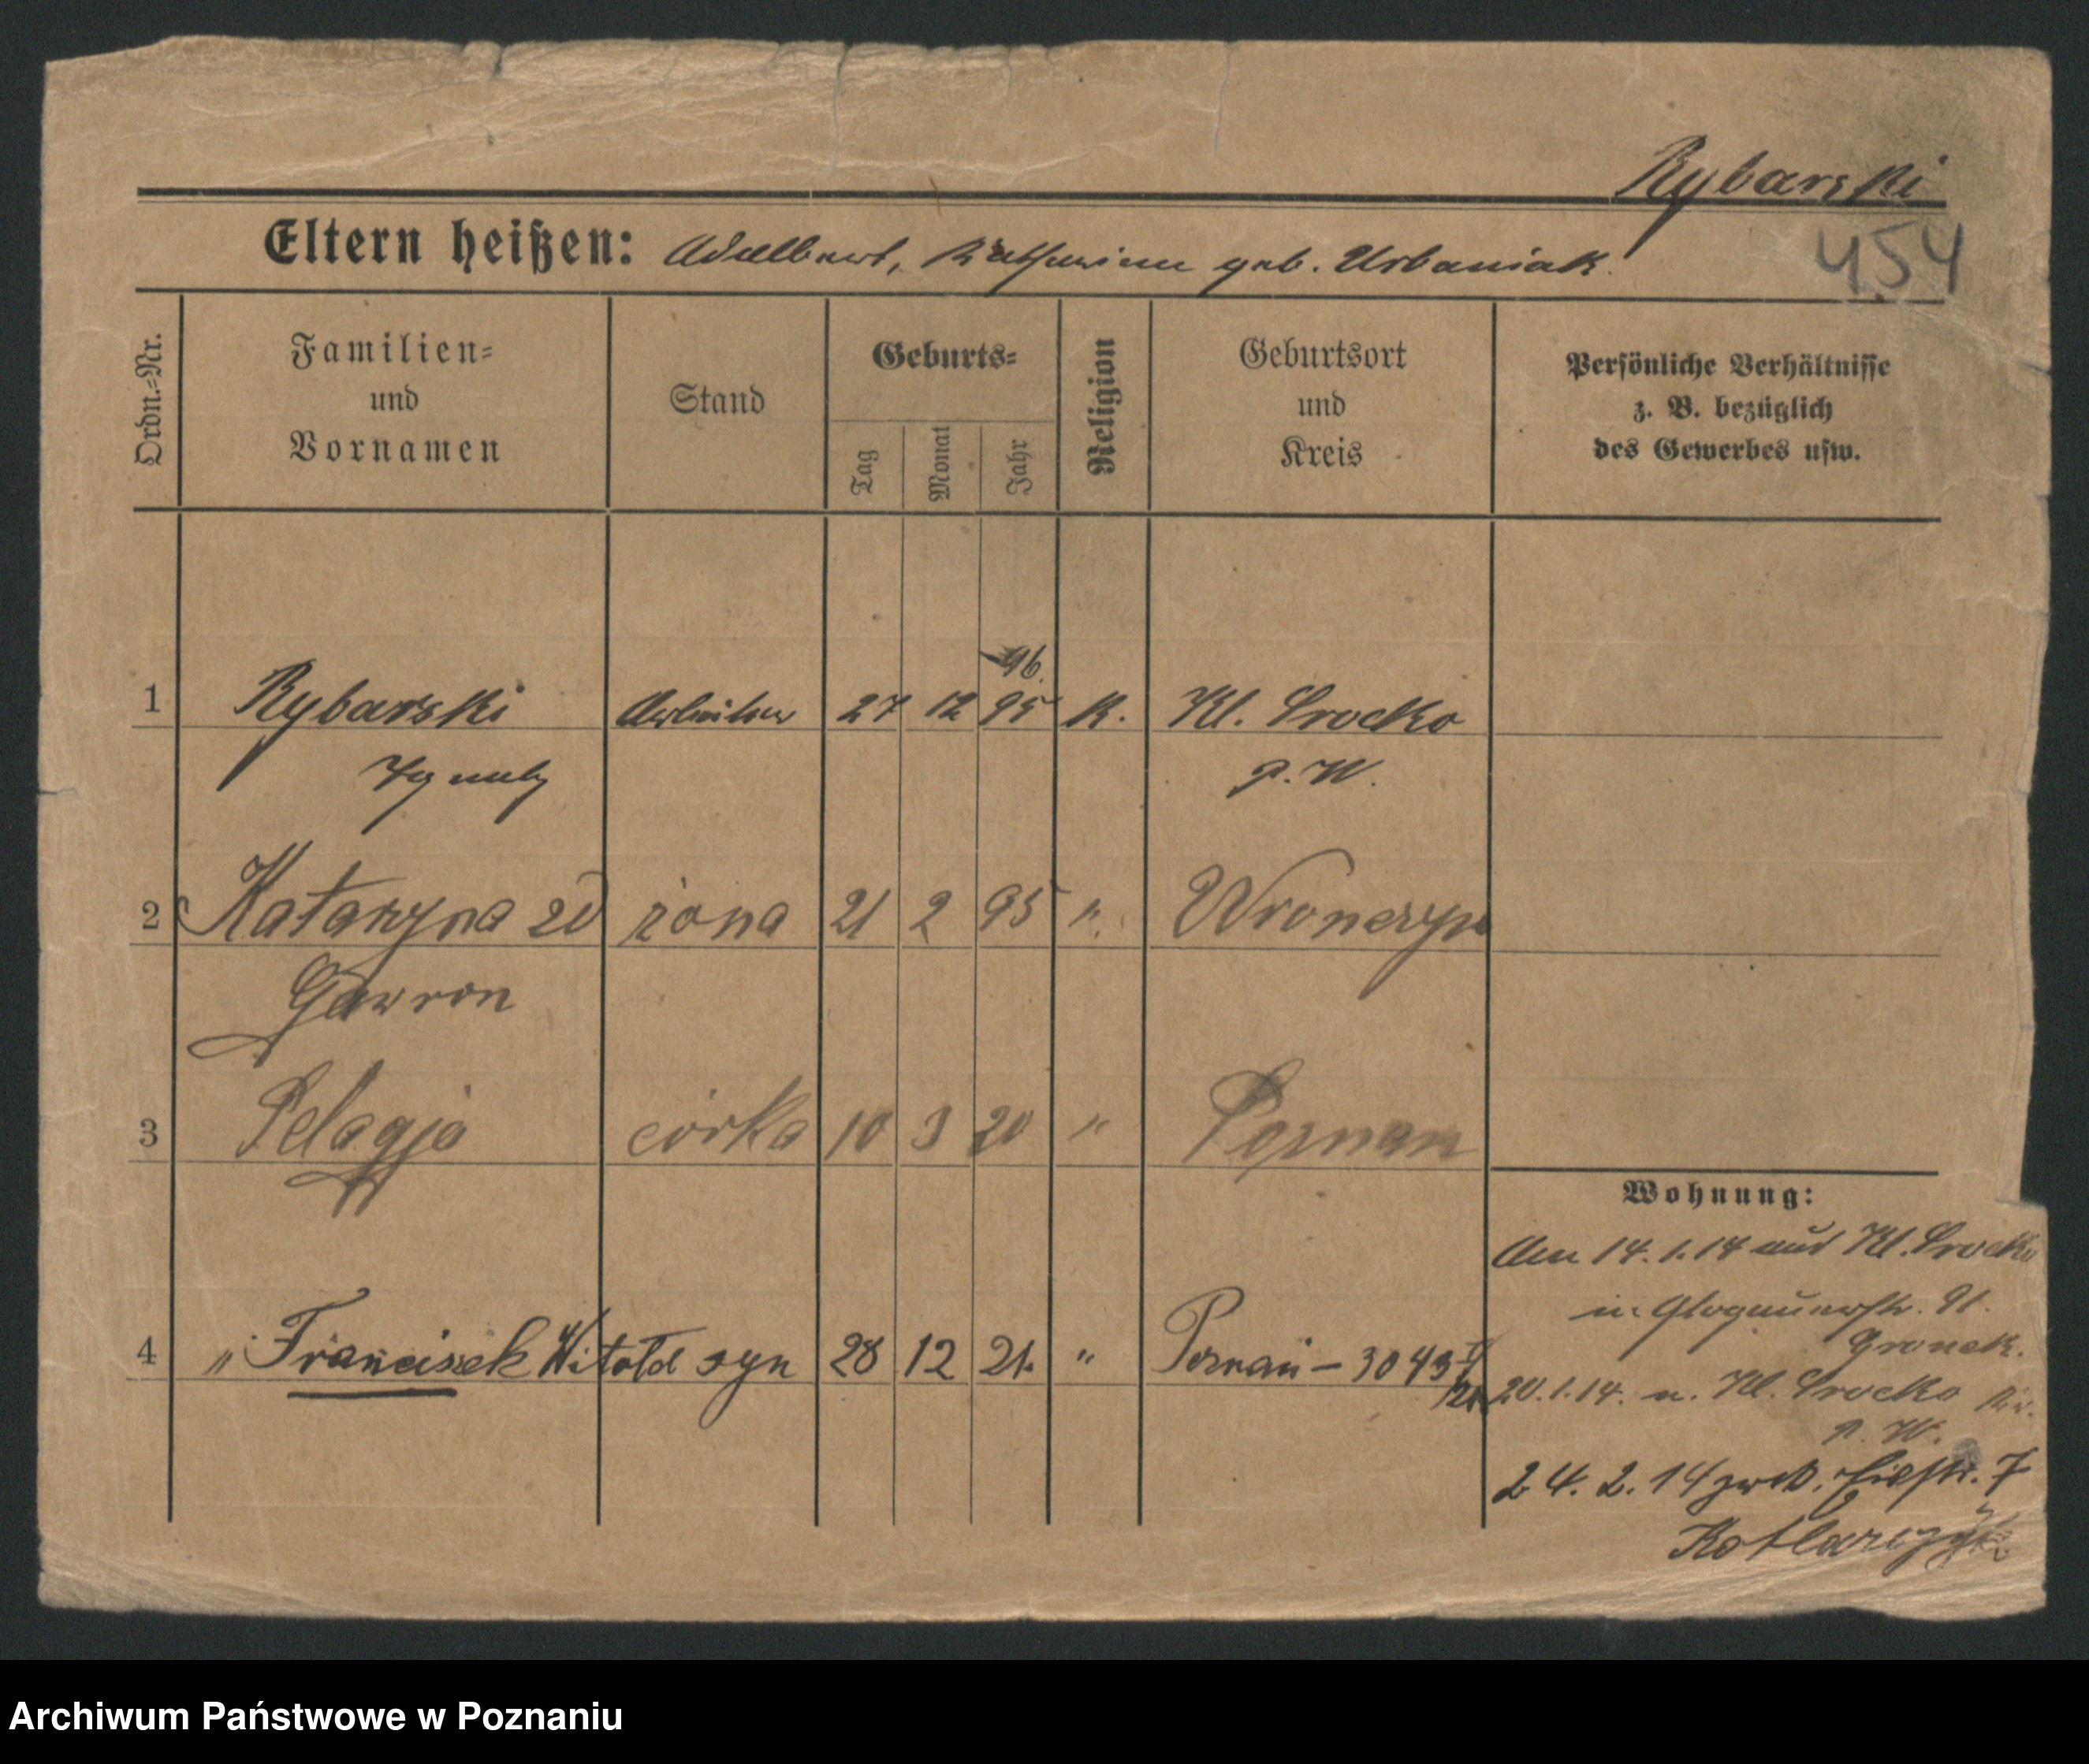 Rybarski
Eltern heißen: Adalbert, Katharina geb. Urbaniak.
454
Ordn.=Nr.
Familien=
und
Vornamen
Stand
Geburts=
Tag
Monat
Jahr
Religion
Geburtsort
und
Kreis
Persönliche Verhältnisse
z. B. bezüglich
des Gewerbes usw.
96.
1 Rybarski Arbeiter 27 12 95 K. Kl. Srocko
Ignatz P. W.
2 Kataryna zd żona 21 2 95 ".
Gawron
3 Pelagja córka 10 3 20 " Poznan
Wohnung:
Am 14.1.14 aus Kl. Srocko
in Glogauerstr. 91.
Gronek.
4 " Franciszek Witold syn 28 12 21. " Poznań – 3043
20.1.14. n. Kl. Srocko
P. W.
24. 2. 14 zurck. 7
Kotlarczyk
Archiwum Państwowe w Poznaniu